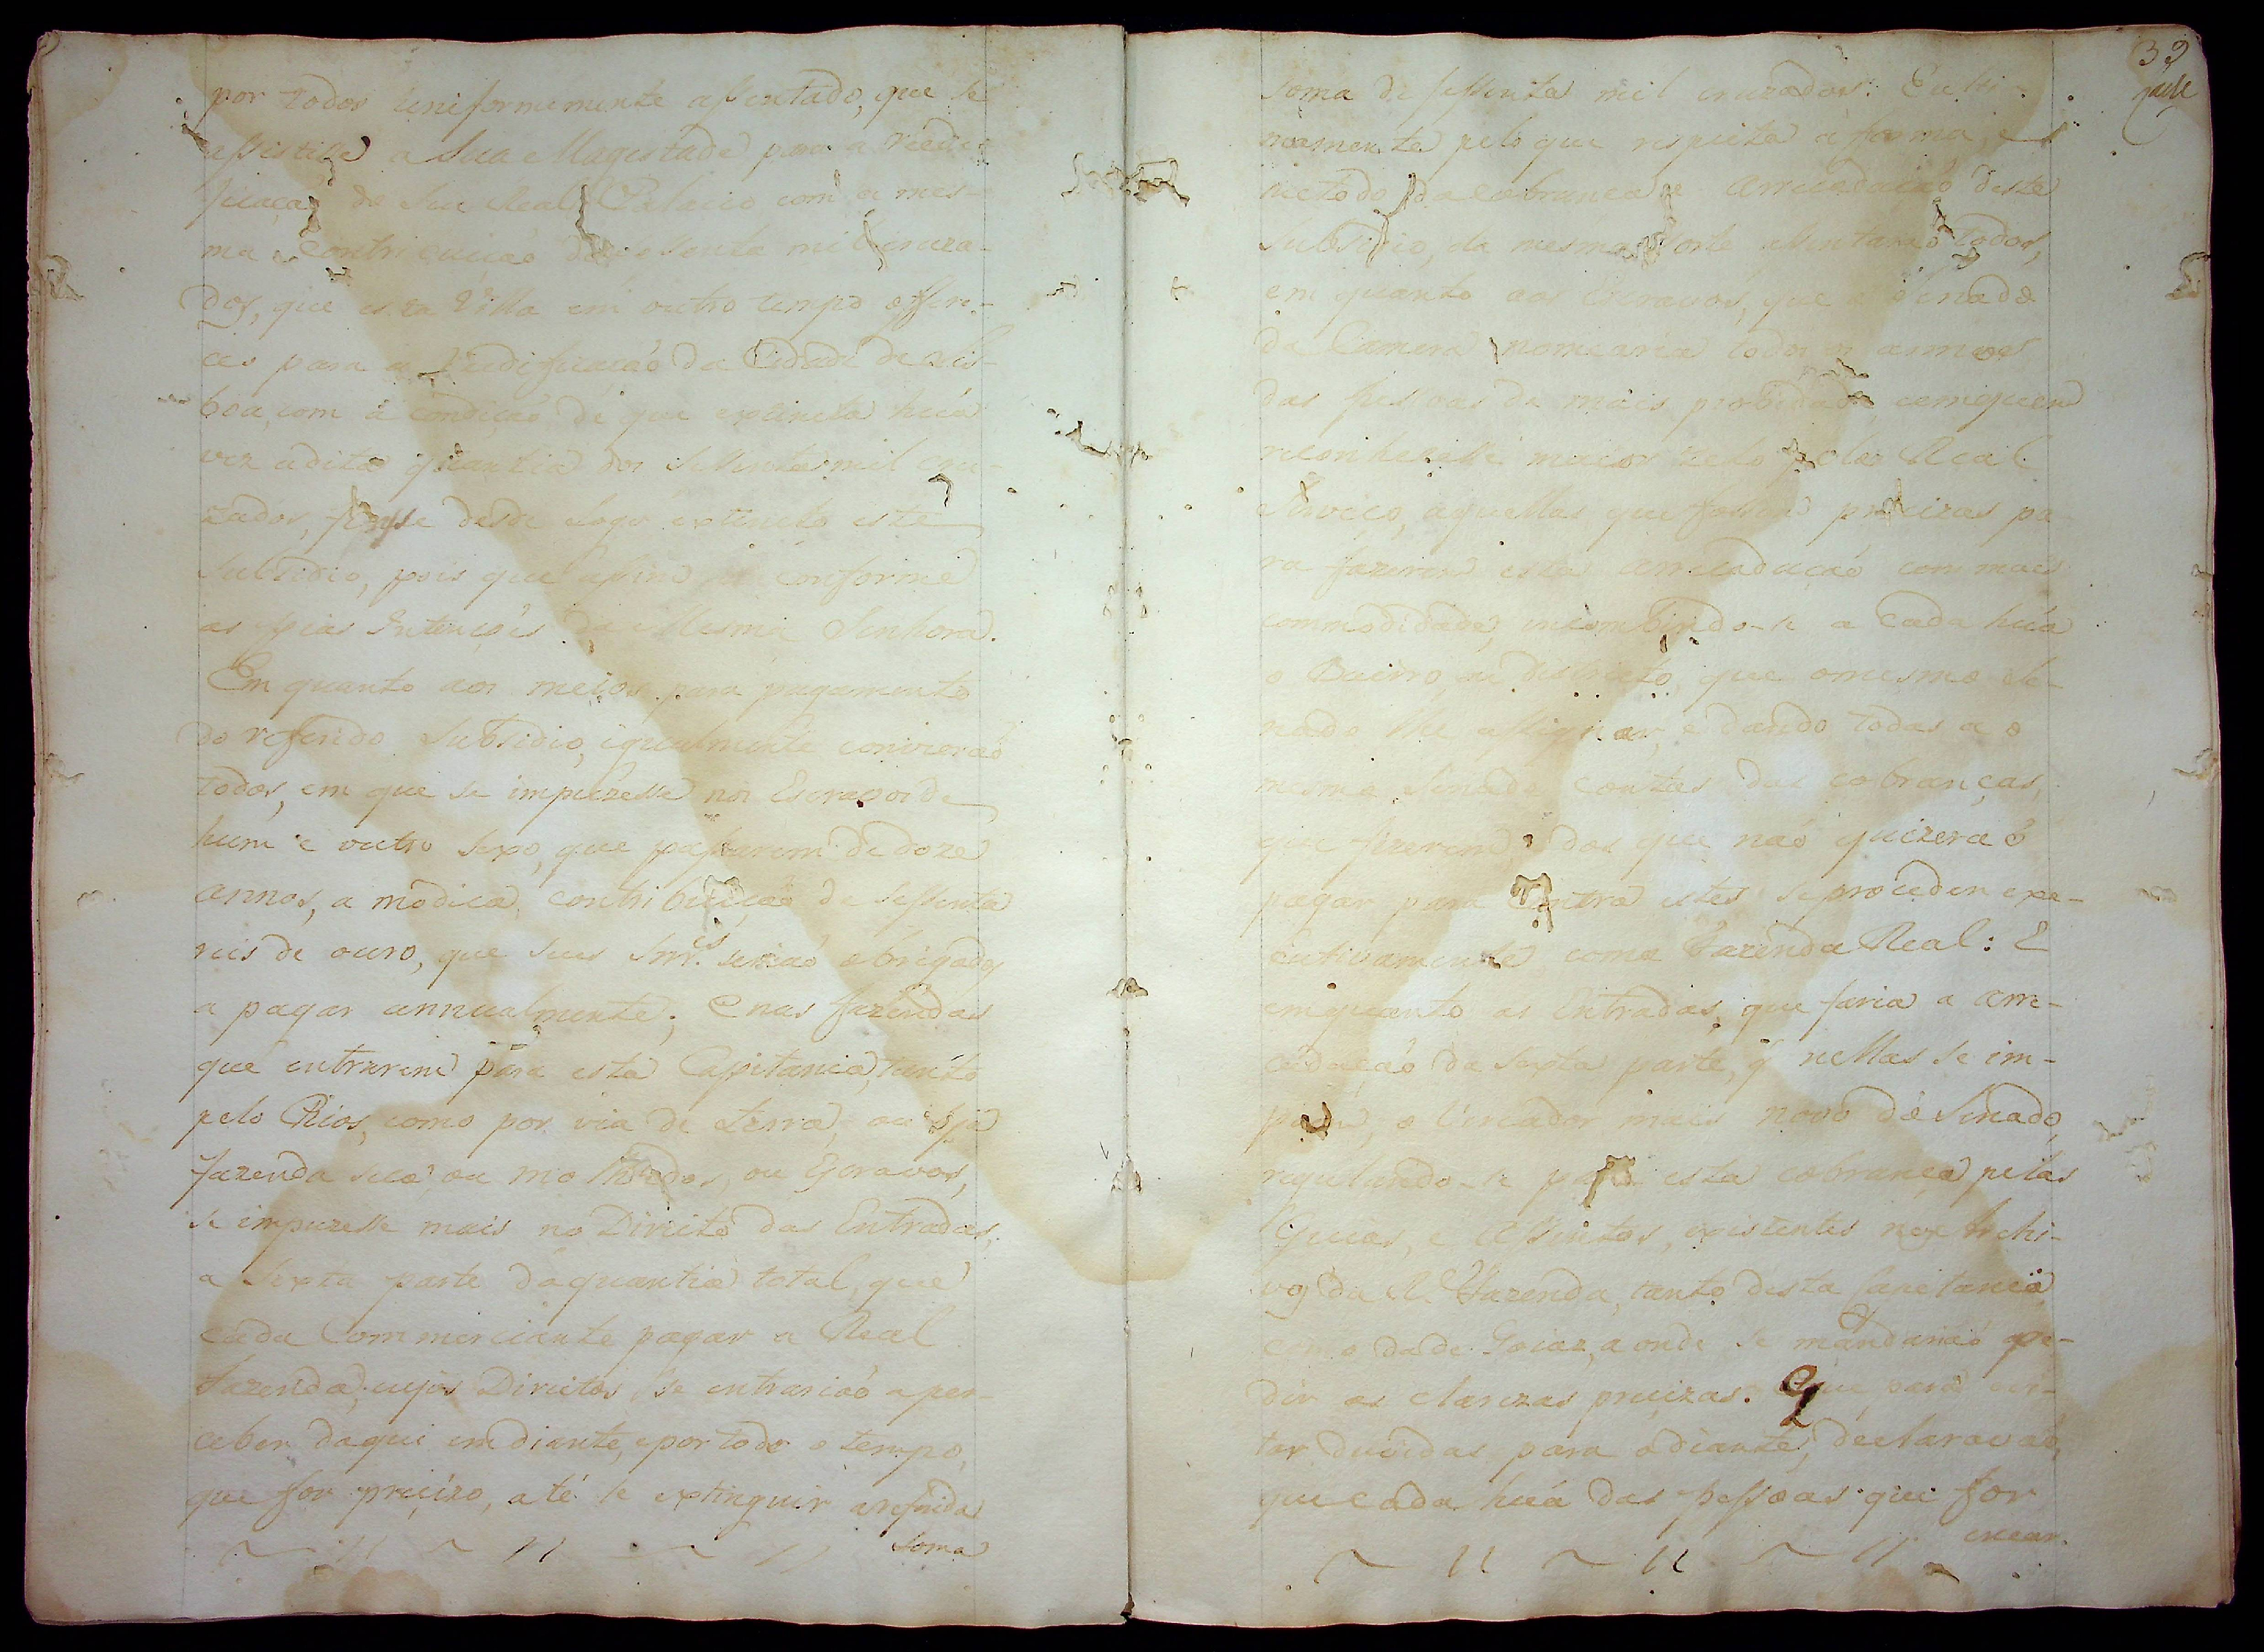 por todos uniformemente assentado, que se
assistisse a Sua Magestade para a reedi-
ficaçaõ do Seu Real Palacio com a mes-
ma Contribuiçaõ de sessenta mil cruza-
dos, que esta Villa em outro tempo offere-
ceo para a reedificaçaõ da Cidade de Lis-
boa, com a condiçaõ de que extincta húa
vez a dita quantia dos Sessenta mil cru-
zados, fosse desde logo extincto este
Subsidio, pois que assim conforme
as pias Intençoẽs da Mesma Senhora.
Em quanto aos meios para pagamento
do referido Subsidio, igualmente convieraõ
todos, em que se impuzesse nos Escravos de
hum e outro sexo, que passarem de doze
annos, a modica contribuiçaõ de sessenta
reis de ouro, que seus Snr.es seriaõ obrigados
a pagar annualmente; E nas fazendas
que entrarem para esta Capitania, tanto
pelo Rios, como por via de terra, ou seja
fazenda seca, ou molhados, ou Escravos,
se impuzesse mais no Direito das Entradas,
a sexta parte da quantia total, que
cada Commerciante pagar a Real
Fazenda, cujos Direitos se entrariaõ a per-
ceber daqui em diante, e por todo o tempo,
que for precizo, até se extinguir a referida
soma
39
soma de sessenta mil cruzados: E ulti-
mamente pelo que respeita á forma, e
metodo da Cobrança e Arrecadaçaõ deste
Subsidio, da mesma sorte assentaraõ todos,
em quanto aos Escravos, que o Senado
da Camera nomearia todos os annos
das pessoas de mais probidade, em quem
reconhecesse maior zelo pelo Real
Serviço, aquellas que fossem precizas pa-
ra fazerem esta arrecadaçaõ com mais
commodidade, incombindo-se a cada húa
o Bairro, ou destricto, que o mesmo Se-
nado lhe assignar, e dando todas a o
mesmo Senado contas das cobranças,
que fizerem, e dos que naõ quizeraõ
pagar para Contra estes se proceder exe-
cutivamente como Fazenda Real: E
em quanto as Entradas, que faria a arre-
cadaçaõ da sexta parte, q̃ nellas se im-
poem, o Vereador mais novo do Senado,
regulando-se para esta cobrança pelas
Guias, e Assentos, existentes nos Archi-
vos da R. Fazenda, tanto desta Capitania
como da de Goiaz, a onde se mandariaõ pe-
dir as clarezas precizas. E que para evi-
tar duvidas para o diante, declaravaõ,
que cada húa das pessoas que for
encar-